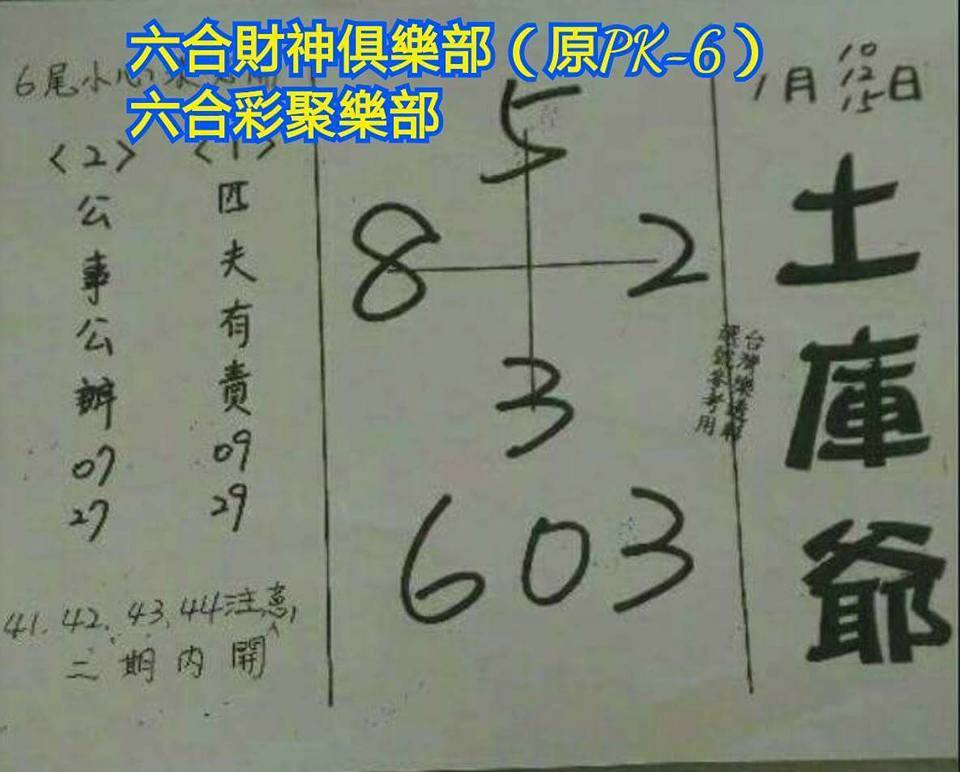 六合財神俱樂部（原PK-6）
六合彩聚樂部
1月10 12 15日
土庫爺
台灣樂透彩
參考用
5
8 2
3
603
6尾小心
<1>
匹夫有責
09
29
<2>
公事公辦
07
27
41.42、43、44注意,
二期內開